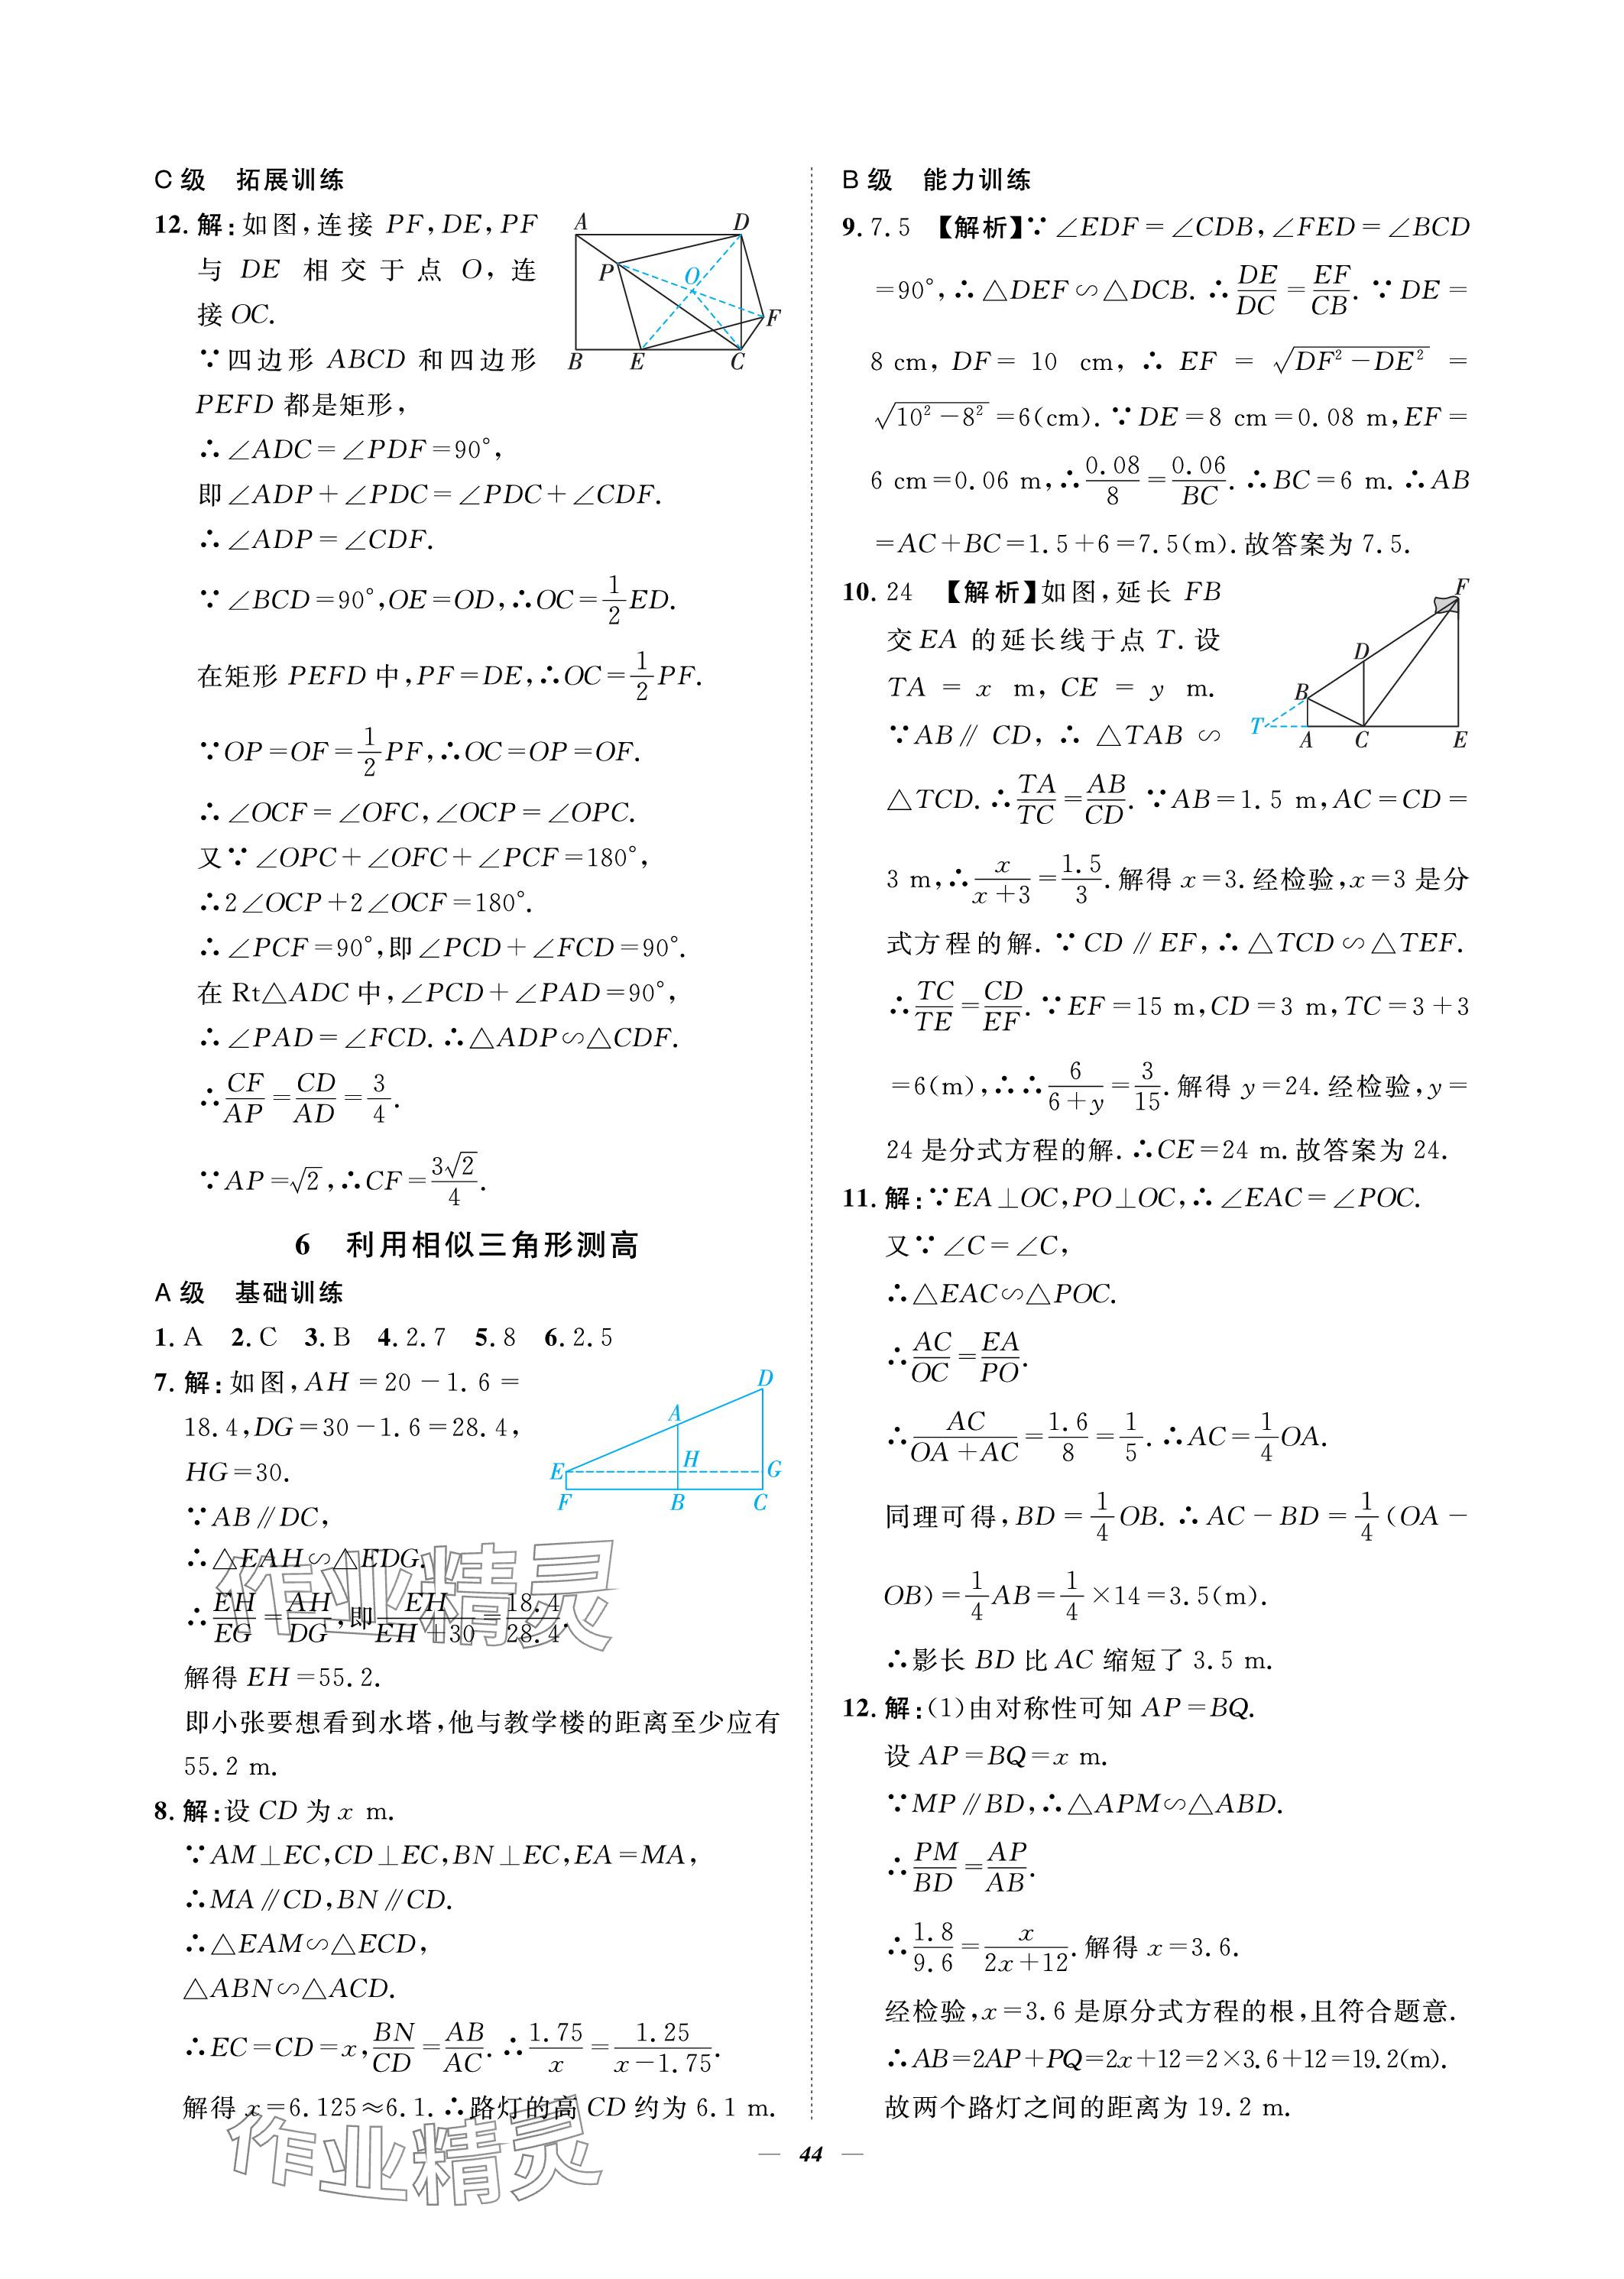 C级 拓展训练
12. 解:如图,连接 PF,DE,PF
与 DE 相交于点 O,连
接 OC.
∵四边形 ABCD 和四边形
PEFD 都是矩形,
∴∠ADC=∠PDF=90°,
即∠ADP+∠PDC=∠PDC+∠CDF.
∴∠ADP=∠CDF.
∵∠BCD=90°,OE=OD,∴OC=1/2 ED.
在矩形 PEFD 中,PF=DE,∴OC=1/2 PF.
∵OP=OF=1/2 PF,∴OC=OP=OF.
∴∠OCF=∠OFC,∠OCP=∠OPC.
又∵∠OPC+∠OFC+∠PCF=180°,
∴2∠OCP+2∠OCF=180°.
∴∠PCF=90°,即∠PCD+∠FCD=90°.
在 Rt△ADC 中,∠PCD+∠PAD=90°,
∴∠PAD=∠FCD.∴△ADP∽△CDF.
∴CF/AP=CD/AD=3/4.
∵AP=√2,∴CF=3√2/4.
A D P O F B E C
6 利用相似三角形测高
A级 基础训练
1. A 2. C 3. B 4. 2.7 5. 8 6. 2.5
7. 解:如图,AH=20-1.6=
18.4,DG=30-1.6=28.4,
HG=30.
∵AB∥DC,
∴△EAH∽△EDG.
∴EH/EG=AH/DG,即EH/(EH+30)=18.4/28.4.
解得 EH=55.2.
即小张要想看到水塔,他与教学楼的距离至少应有
55.2 m.
D A E H G F B C
8. 解:设 CD 为 x m.
∵AM⊥EC,CD⊥EC,BN⊥EC,EA=MA,
∴MA∥CD,BN∥CD.
∴△EAM∽△ECD,
△ABN∽△ACD.
∴EC=CD=x,BN/CD=AB/AC.∴1.75/x=1.25/(x-1.75).
解得 x=6.125≈6.1.∴路灯的高 CD 约为 6.1 m.
B级 能力训练
9. 7.5 【解析】∵∠EDF=∠CDB,∠FED=∠BCD
=90°,∴△DEF∽△DCB.∴DE/DC=EF/CB.∵DE=
8 cm,DF=10 cm,∴EF=√(DF²-DE²)=
√(10²-8²)=6(cm).∵DE=8 cm=0.08 m,EF=
6 cm=0.06 m,∴0.08/8=0.06/BC.∴BC=6 m.∴AB
=AC+BC=1.5+6=7.5(m).故答案为 7.5.
10. 24 【解析】如图,延长 FB
交EA 的延长线于点 T.设
TA=x m,CE=y m.
∵AB∥CD,∴△TAB∽
△TCD.∴TA/TC=AB/CD.∵AB=1.5 m,AC=CD=
3 m,∴x/(x+3)=1.5/3.解得 x=3.经检验,x=3 是分
式方程的解.∵CD∥EF,∴△TCD∽△TEF.
∴TC/TE=CD/EF.∵EF=15 m,CD=3 m,TC=3+3
=6(m),∴∴6/(6+y)=3/15.解得 y=24.经检验,y=
24 是分式方程的解.∴CE=24 m.故答案为 24.
F D B T A C E
11. 解:∵EA⊥OC,PO⊥OC,∴∠EAC=∠POC.
又∵∠C=∠C,
∴△EAC∽△POC.
∴AC/OC=EA/PO.
∴AC/(OA+AC)=1.6/8=1/5.∴AC=1/4 OA.
同理可得,BD=1/4 OB.∴AC-BD=1/4(OA-
OB)=1/4 AB=1/4×14=3.5(m).
∴影长 BD 比 AC 缩短了 3.5 m.
12. 解:(1)由对称性可知 AP=BQ.
设 AP=BQ=x m.
∵MP∥BD,∴△APM∽△ABD.
∴PM/BD=AP/AB.
∴1.8/9.6=x/(2x+12).解得 x=3.6.
经检验,x=3.6 是原分式方程的根,且符合题意.
∴AB=2AP+PQ=2x+12=2×3.6+12=19.2(m).
故两个路灯之间的距离为 19.2 m.
— 44 —
作业精灵
作业精灵